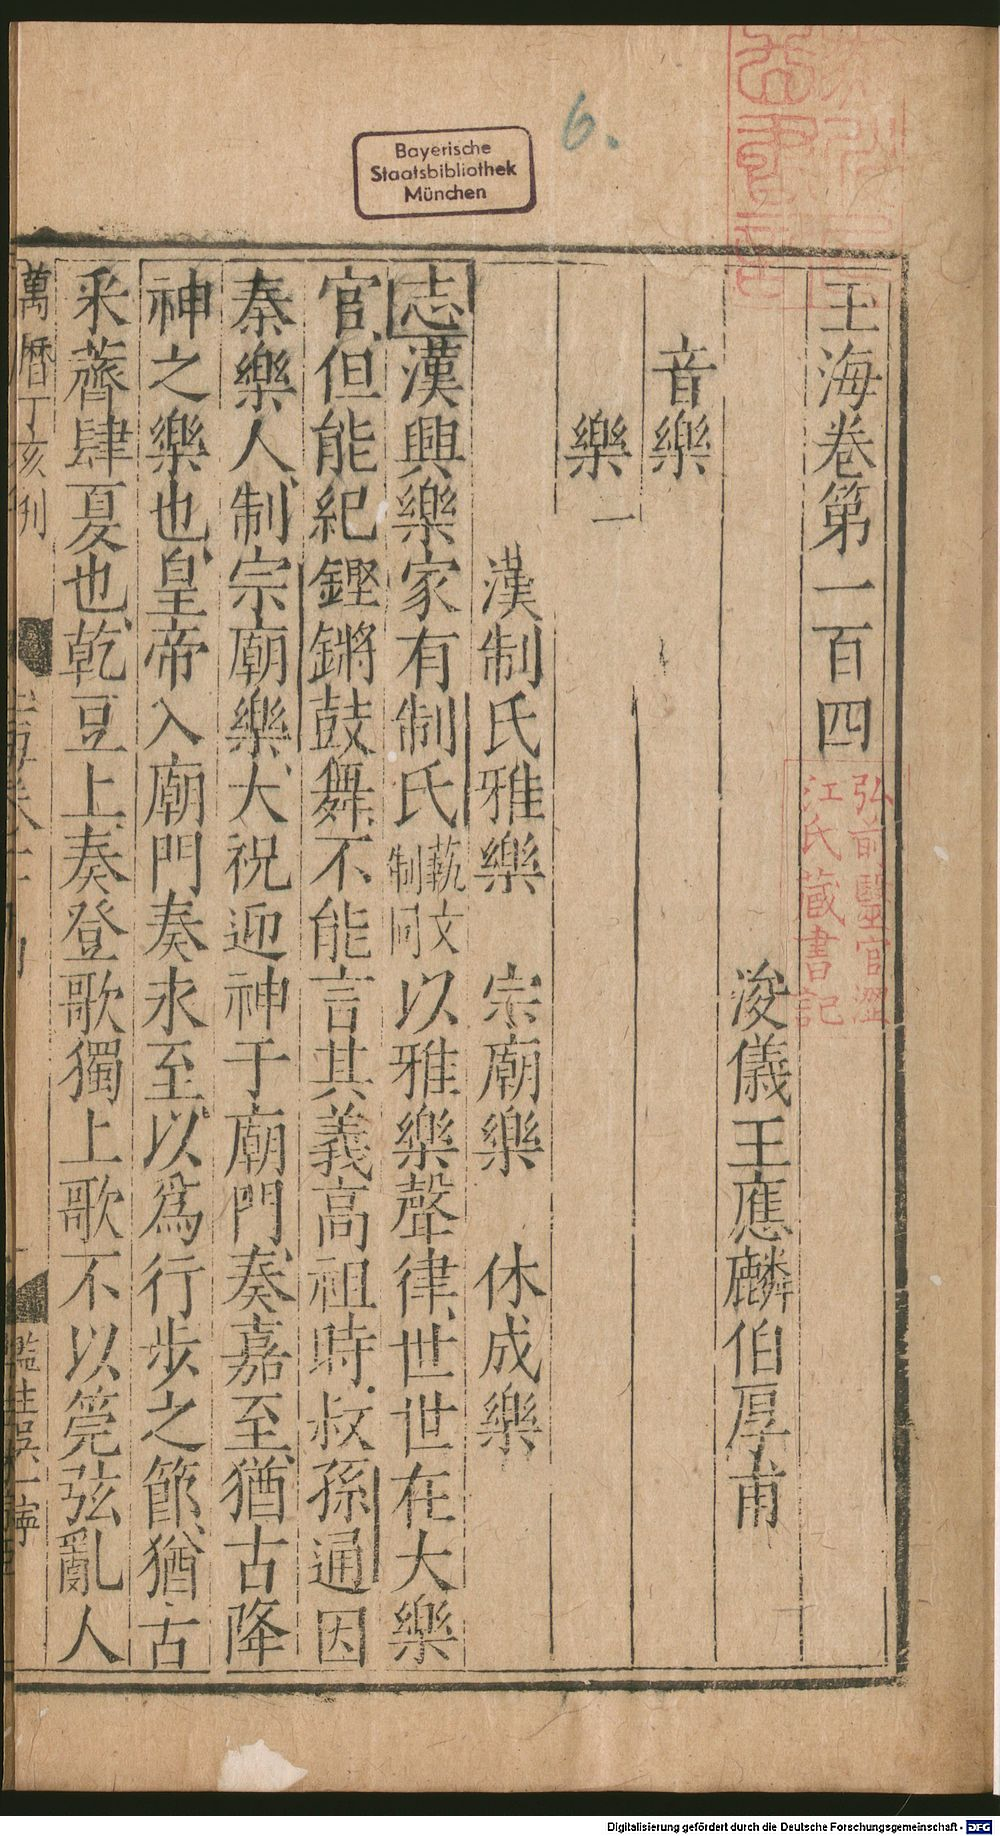 6.
Bayerische
Staatsbibliothek
München
玉海卷第一百四
浚儀王應麟伯厚甫
音樂
樂一
漢制氏雅樂 宗廟樂 休成樂
志漢興樂家有制氏藝文制同以雅樂聲律世世在大樂
官但能紀鏗鏘鼓舞不能言其義高祖時叔孫通因
秦樂人制宗廟樂大祝迎神于廟門奏嘉至猶古降
神之樂也皇帝入廟門奏永至以爲行步之節猶古
采薺肆夏也乾豆上奏登歌獨上歌不以筦弦亂人
萬曆丁亥刊
弘前醫官澀
江氏藏書記
Digitalisierung gefördert durch die Deutsche Forschungsgemeinschaft - DFG